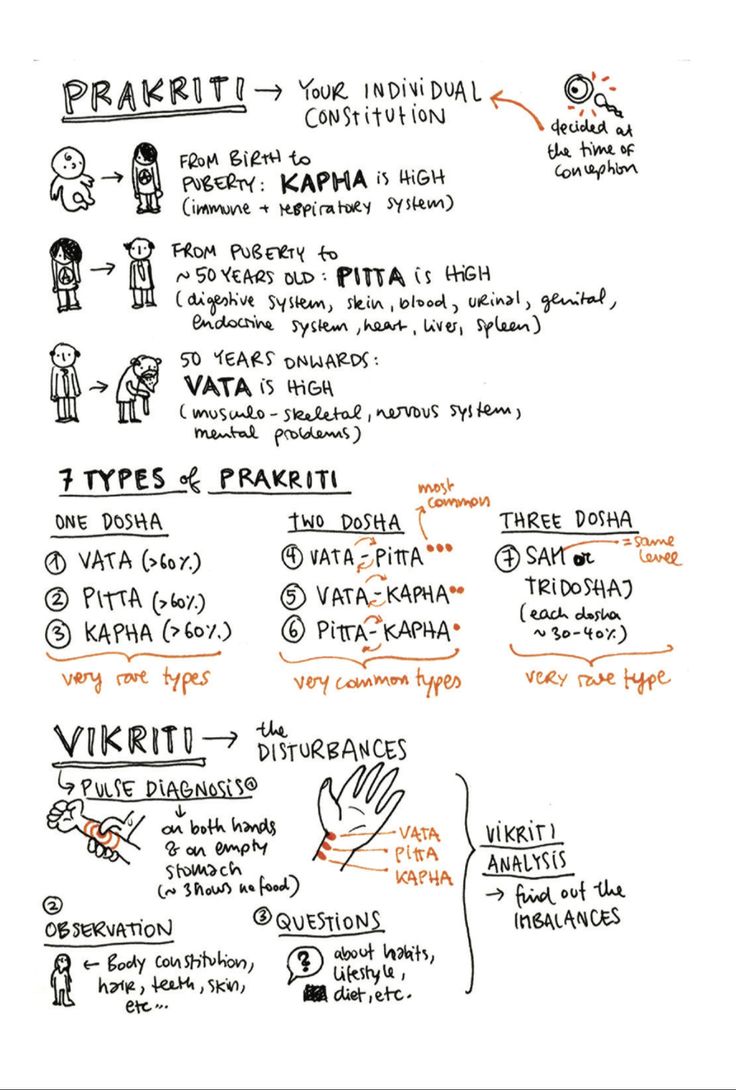 PRAKRITI → YOUR INDIVIDUAL
CONSTITUTION
decided at
the time of
conception
FROM BIRTH to
PUBERTY: KAPHA is HIGH
(immune + respiratory system)
FROM PUBERTY to
~ 50 YEARS OLD: PITTA is HIGH
(digestive system, skin, blood, urinal, genital,
endocrine system, heart, liver, spleen)
50 YEARS ONWARDS:
VATA is HIGH
(musculo-skeletal, nervous system,
mental problems)
7 TYPES of PRAKRITI
ONE DOSHA
① VATA (>60%)
② PITTA (>60%)
③ KAPHA (>60%)
very rare types
most
common
TWO DOSHA
④ VATA-PITTA
⑤ VATA-KAPHA
⑥ PITTA-KAPHA
very common types
THREE DOSHA
⑦ SAM or
= same
level
TRIDOSHAJ
(each dosha
~30-40%)
very rare type
VIKRITI → the
DISTURBANCES
PULSE DIAGNOSIS ①
on both hands
& on empty
stomach
(~ 3 hours no food)
VATA
PITTA
KAPHA
②
OBSERVATION
← Body constitution,
hair, teeth, skin,
etc...
③ QUESTIONS
?
about habits,
lifestyle,
diet, etc.
VIKRITI
ANALYSIS
→ find out the
IMBALANCES